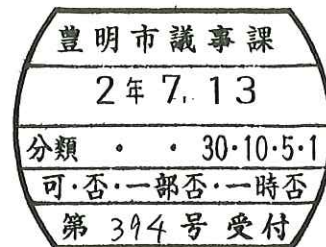 豊明市議事課
2年7.13
分類 ・ ・ 30・10・5・1
可・否・一部否・一時否
第 394 号 受付